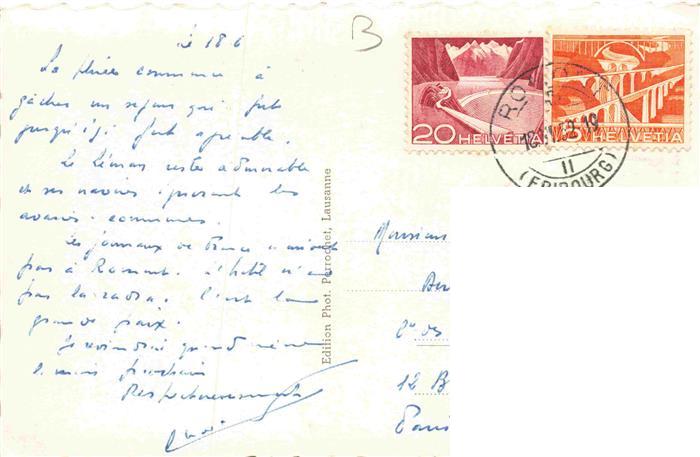 Le 18 6
La pluie commence à
gâcher un séjour qui fut
jusqu'ici fort agréable.
Le Léman reste admirable
et ses navires
communes.
Les journaux de France n'arrivent
pas à Romont. L'hôtel n'a
pas la radio. C'est la
grande paix.
Je reviendrai quand même
le mois prochain
Respectueusement
B
20 HELVETIA
5 HELVETIA
18.VI.52.19
II
(FRIBOURG)
Edition Phot. Perrochet, Lausanne
Monsieur
Cie des
12 B
Paris